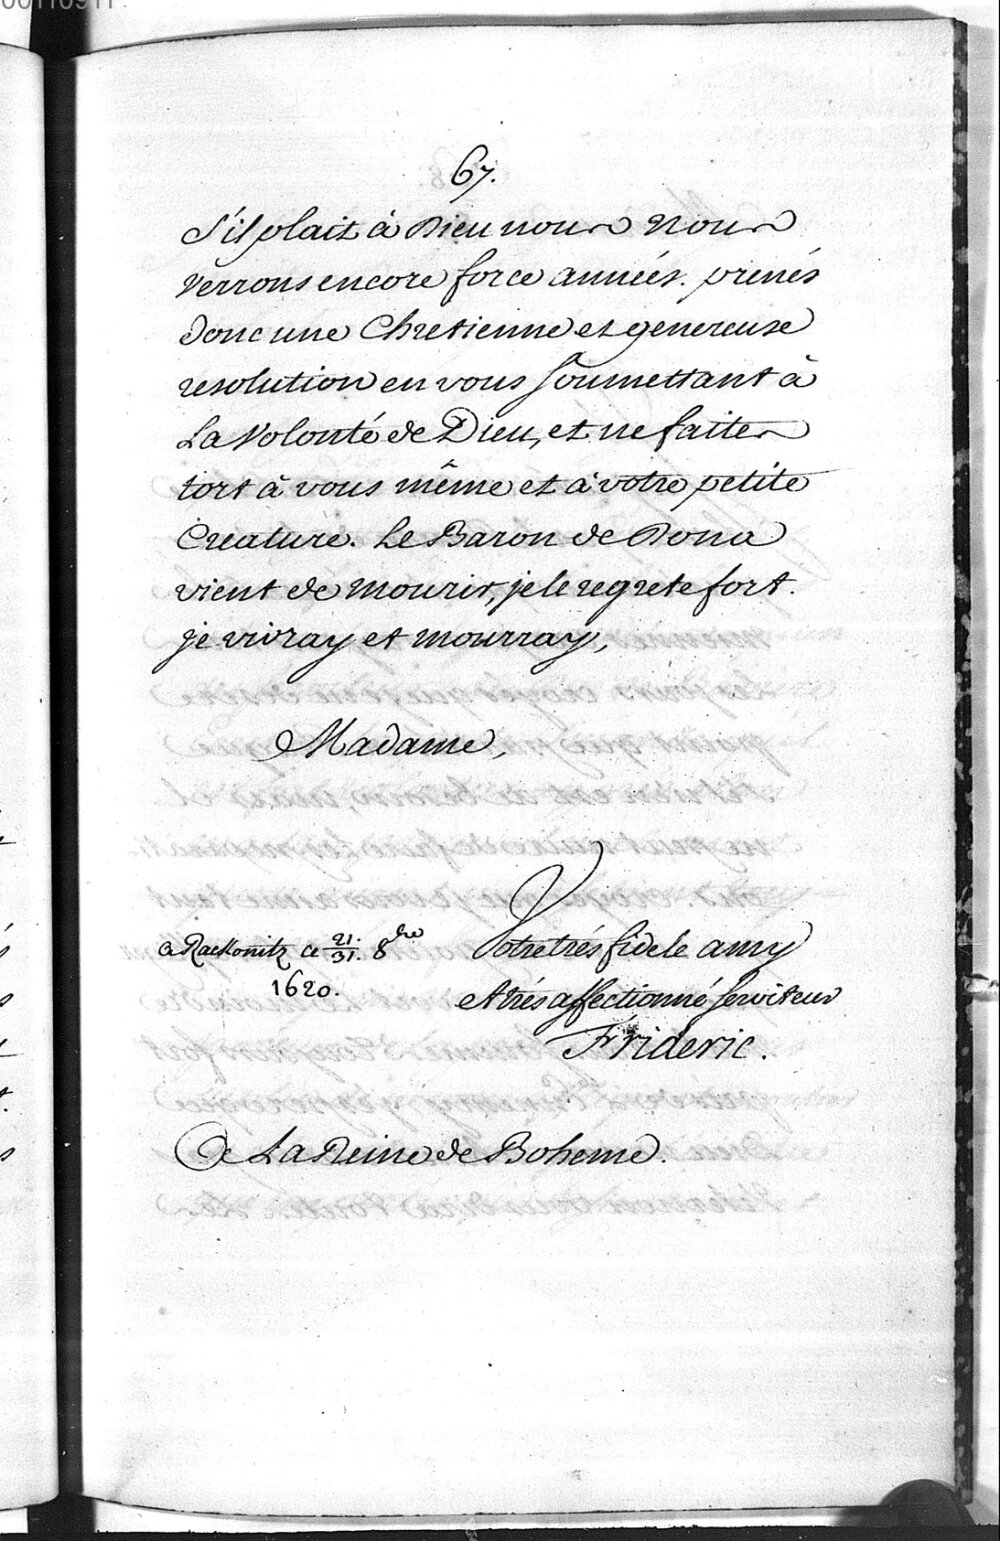 67.
S'il plait à Dieu nous nous
verrons encore force années. prenés
donc une Chretienne et genereuse
resolution en vous soumettant à
La Volonté de Dieu, et ne faites
tort à vous même et à votre petite
Creature. Le Baron de Dona
vient de mourir, je le regrete fort.
je vivray et mourray,
Madame,
Votre trés fidele amy
a Rackonitz ce 21./31. 8bre
1620.
et trés affectionné serviteur
Frideric.
A La Reine de Boheme.